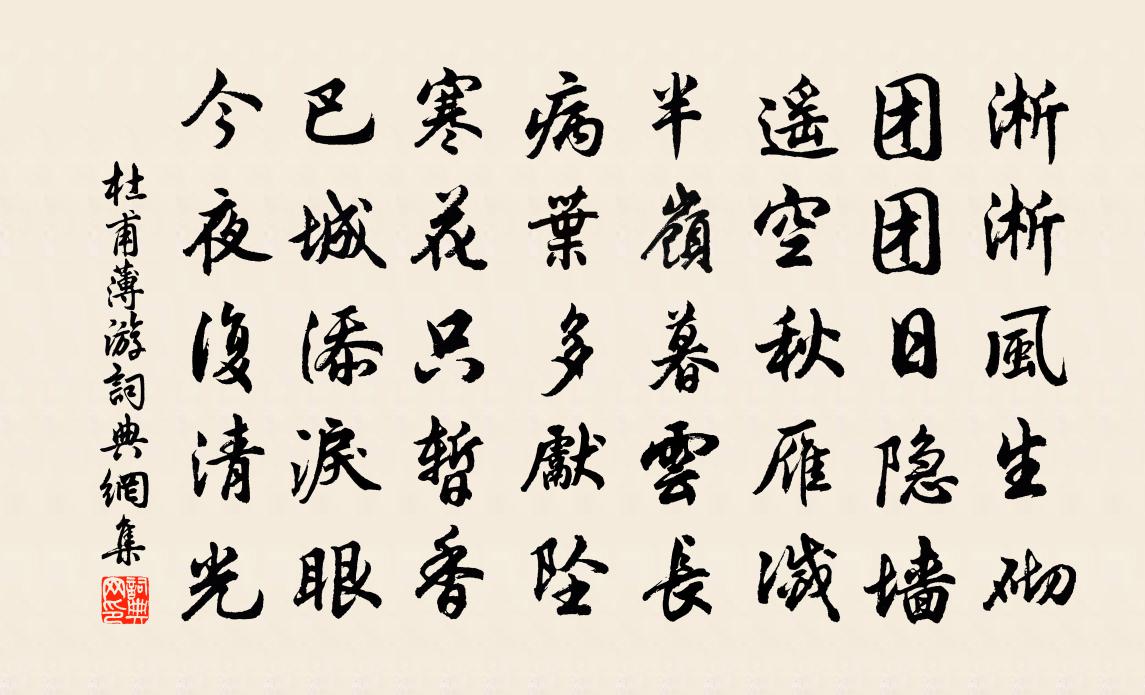 淅淅風生砌
团团日隐墙
遥空秋雁滅
半嶺暮雲長
病葉多獻墜
寒花只暫香
巴城添淚眼
今夜復清光
杜甫薄游詞典網集
詞典网印